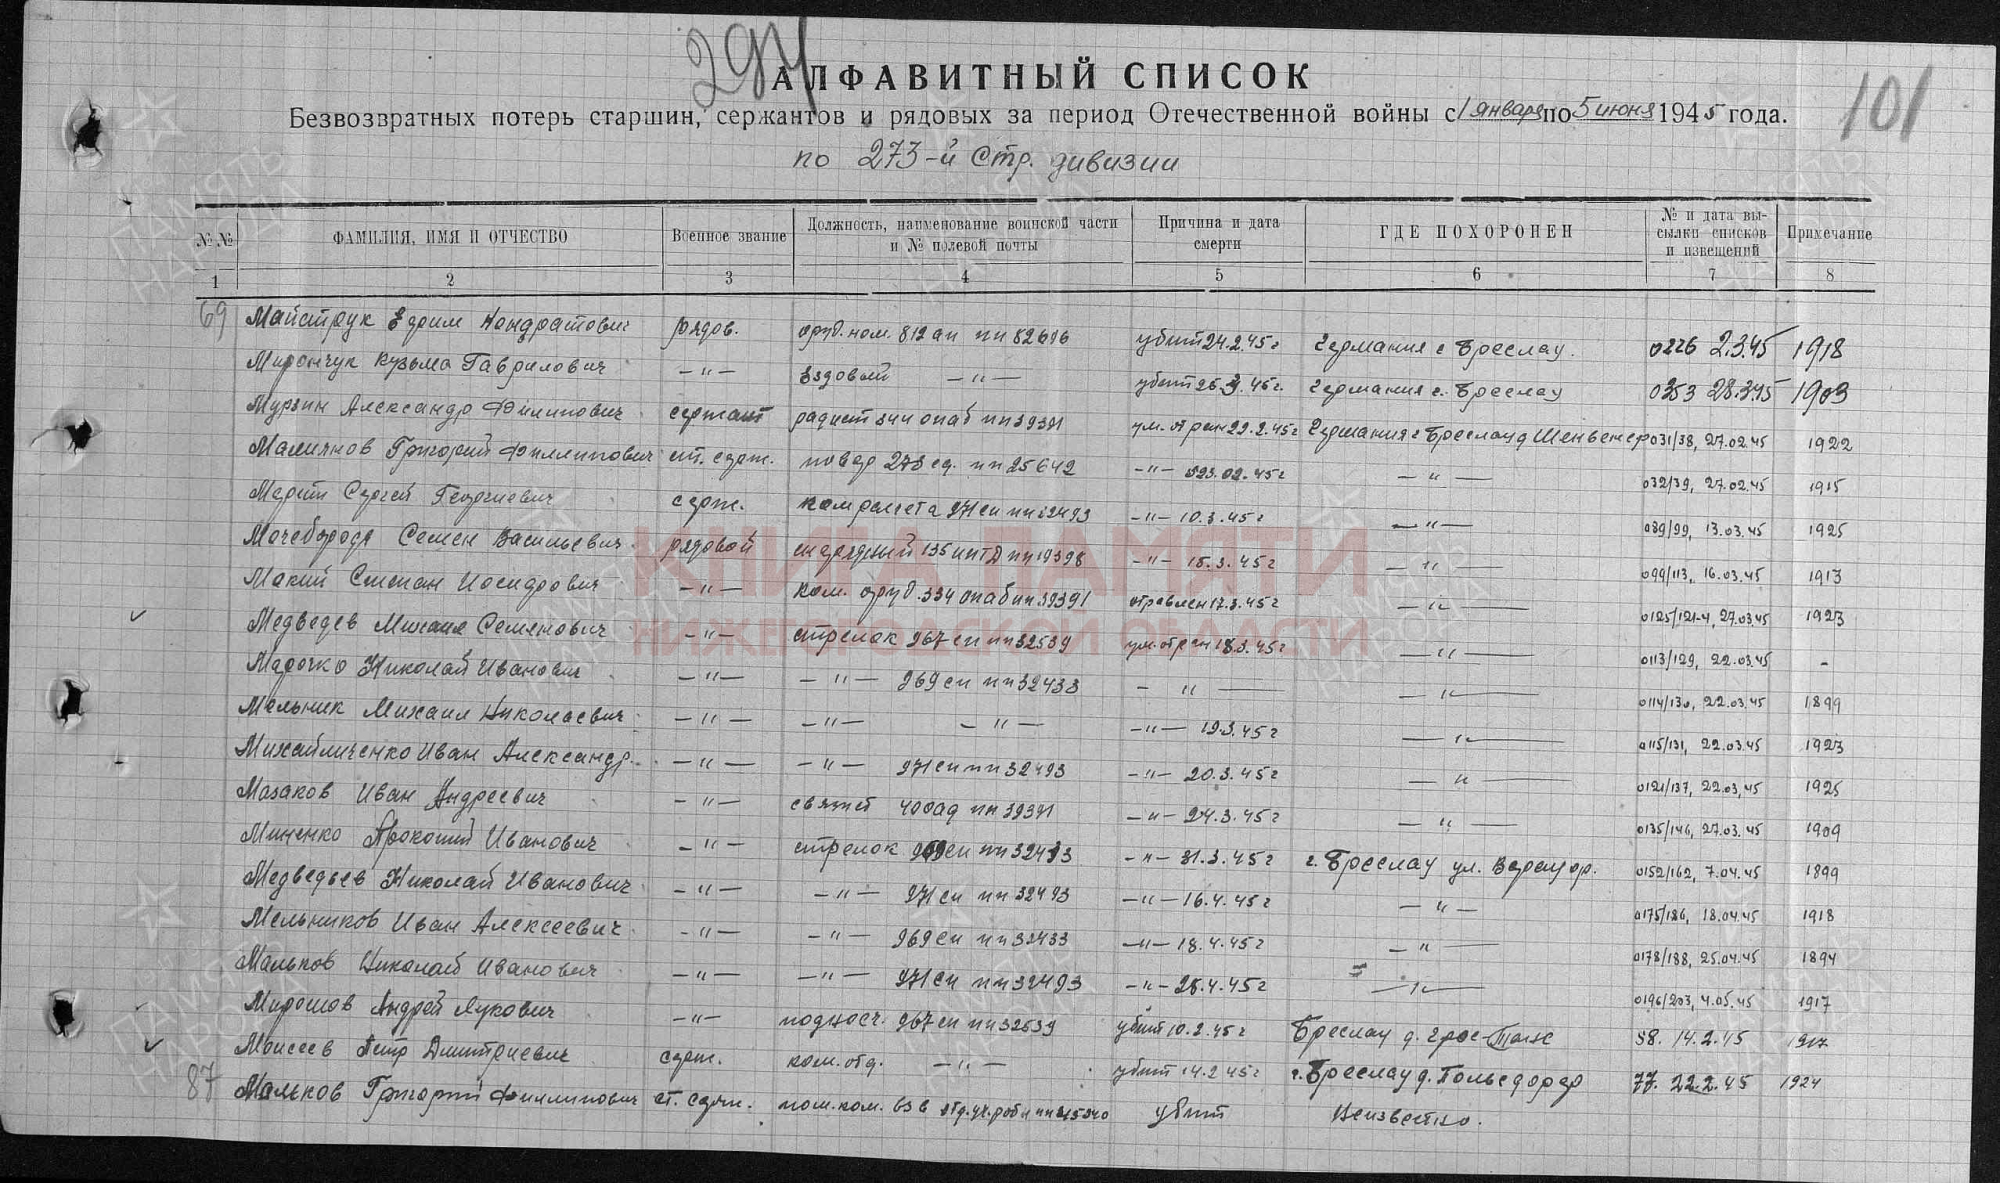 297
101
АЛФАВИТНЫЙ СПИСОК
Безвозвратных потерь старшин, сержантов и рядовых за период Отечественной войны с 1 января по 5 июня 1945 года.
по 273-й Стр. дивизии
№№ ФАМИЛИЯ, ИМЯ И ОТЧЕСТВО Военное звание Должность, наименование воинской части и № полевой почты Причина и дата смерти ГДЕ ПОХОРОНЕН № и дата высылки списков и извещений Примечание
1 2 3 4 5 6 7 8
69 Майструк Ефрим Кондратович рядов. оруд. ном. 812 ап пп 82616 убит 24.2.45г Германия г. Бреслау. 0226 2.3.45 1918
Мирончук Кузьма Гаврилович —"— Ездовый —"— убит 26.3.45г. Германия г. Бреслау 0353 28.3.45 1903
Мурзин Александр Филипович сержант радист пп 39391 ум. от ран 22.2.45г Германия г Бреслау 031/38, 27.02.45 1922
Григорий Филлипович ст. серж. повар пп 25642 —"— 23.02.45г —"— 032/39, 27.02.45 1915
Сергей Георгиевич серж. ком расчета 971 сп пп 32493 —"— 10.3.45г —"— 089/99, 13.03.45 1925
Мочеборода Семен Васильевич рядовой снарядный 135 иптд пп 19398 —"— 15.3.45г —"— 099/113, 16.03.45 1913
Макий Степан Иосифович —"— ком. оруд. 334 опаб пп 39391 отравлен 17.3.45г —"— 0125/121-4, 27.03.45 1923
Медведев Михаил Семенович —"— стрелок 967 сп пп 32539 ум. от ран 18.3.45г —"— 0113/129, 22.03.45 -
Николай Иванович —"— —"— 969 сп пп 32433 —"— —"— 0114/130, 22.03.45 1899
Мельник Михаил Николаевич —"— —"— —"— —"— 19.3.45г —"— 0115/131, 22.03.45 1923
Михайличенко Иван Александр. —"— —"— 971 сп пп 32493 —"— 20.3.45г —"— 0121/137, 22.03.45 1925
Мазаков Иван Андреевич —"— связист пп 39391 —"— 24.3.45г —"— 0135/146, 27.03.45 1909
Миненко Прокопий Иванович —"— стрелок 969 сп пп 32433 —"— 31.3.45г г. Бреслау ул. 0152/162, 7.04.45 1899
Медведьев Николай Иванович —"— —"— 971 сп пп 32493 —"— 16.4.45г —"— 0175/186, 18.04.45 1918
Мельников Иван Алексеевич —"— —"— 969 сп пп 32433 —"— 18.4.45г —"— 0178/188, 25.04.45 1894
Мальков Николай Иванович —"— —"— 971 сп пп 32493 —"— 26.4.45г —"— 0196/203, 4.05.45 1917
Мирошов Андрей Лукович —"— подносч. 967 сп пп 32539 убит 10.2.45г Бреслау д. 58. 14.2.45 1917
Моисеев Петр Дмитриевич серж. ком. отд. —"— убит 14.2.45г г. Бреслау д. 77. 22.2.45 1924
87 Мальков Григорий Филлипович ст. серж. пом. ком. взв убит Неизвестно.
КНИГА ПАМЯТИ
НИЖЕГОРОДСКОЙ ОБЛАСТИ
ПАМЯТЬ НАРОДА